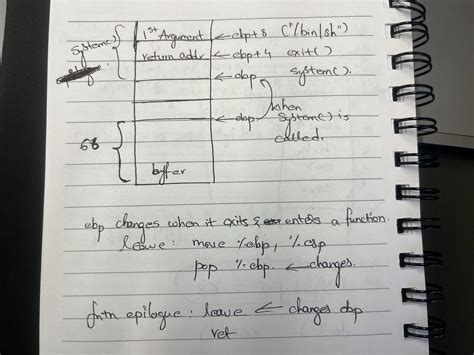 system()
1st Argument ← ebp+8 ("/bin/sh")
return addr ← ebp+4 exit()
← ebp system().
when
← ebp system() is
called.
68
buffer
ebp changes when it exits & enters a function.
leave: move %ebp, %esp
pop %ebp ← changes.
fntn epilogue: leave ← changes ebp
ret